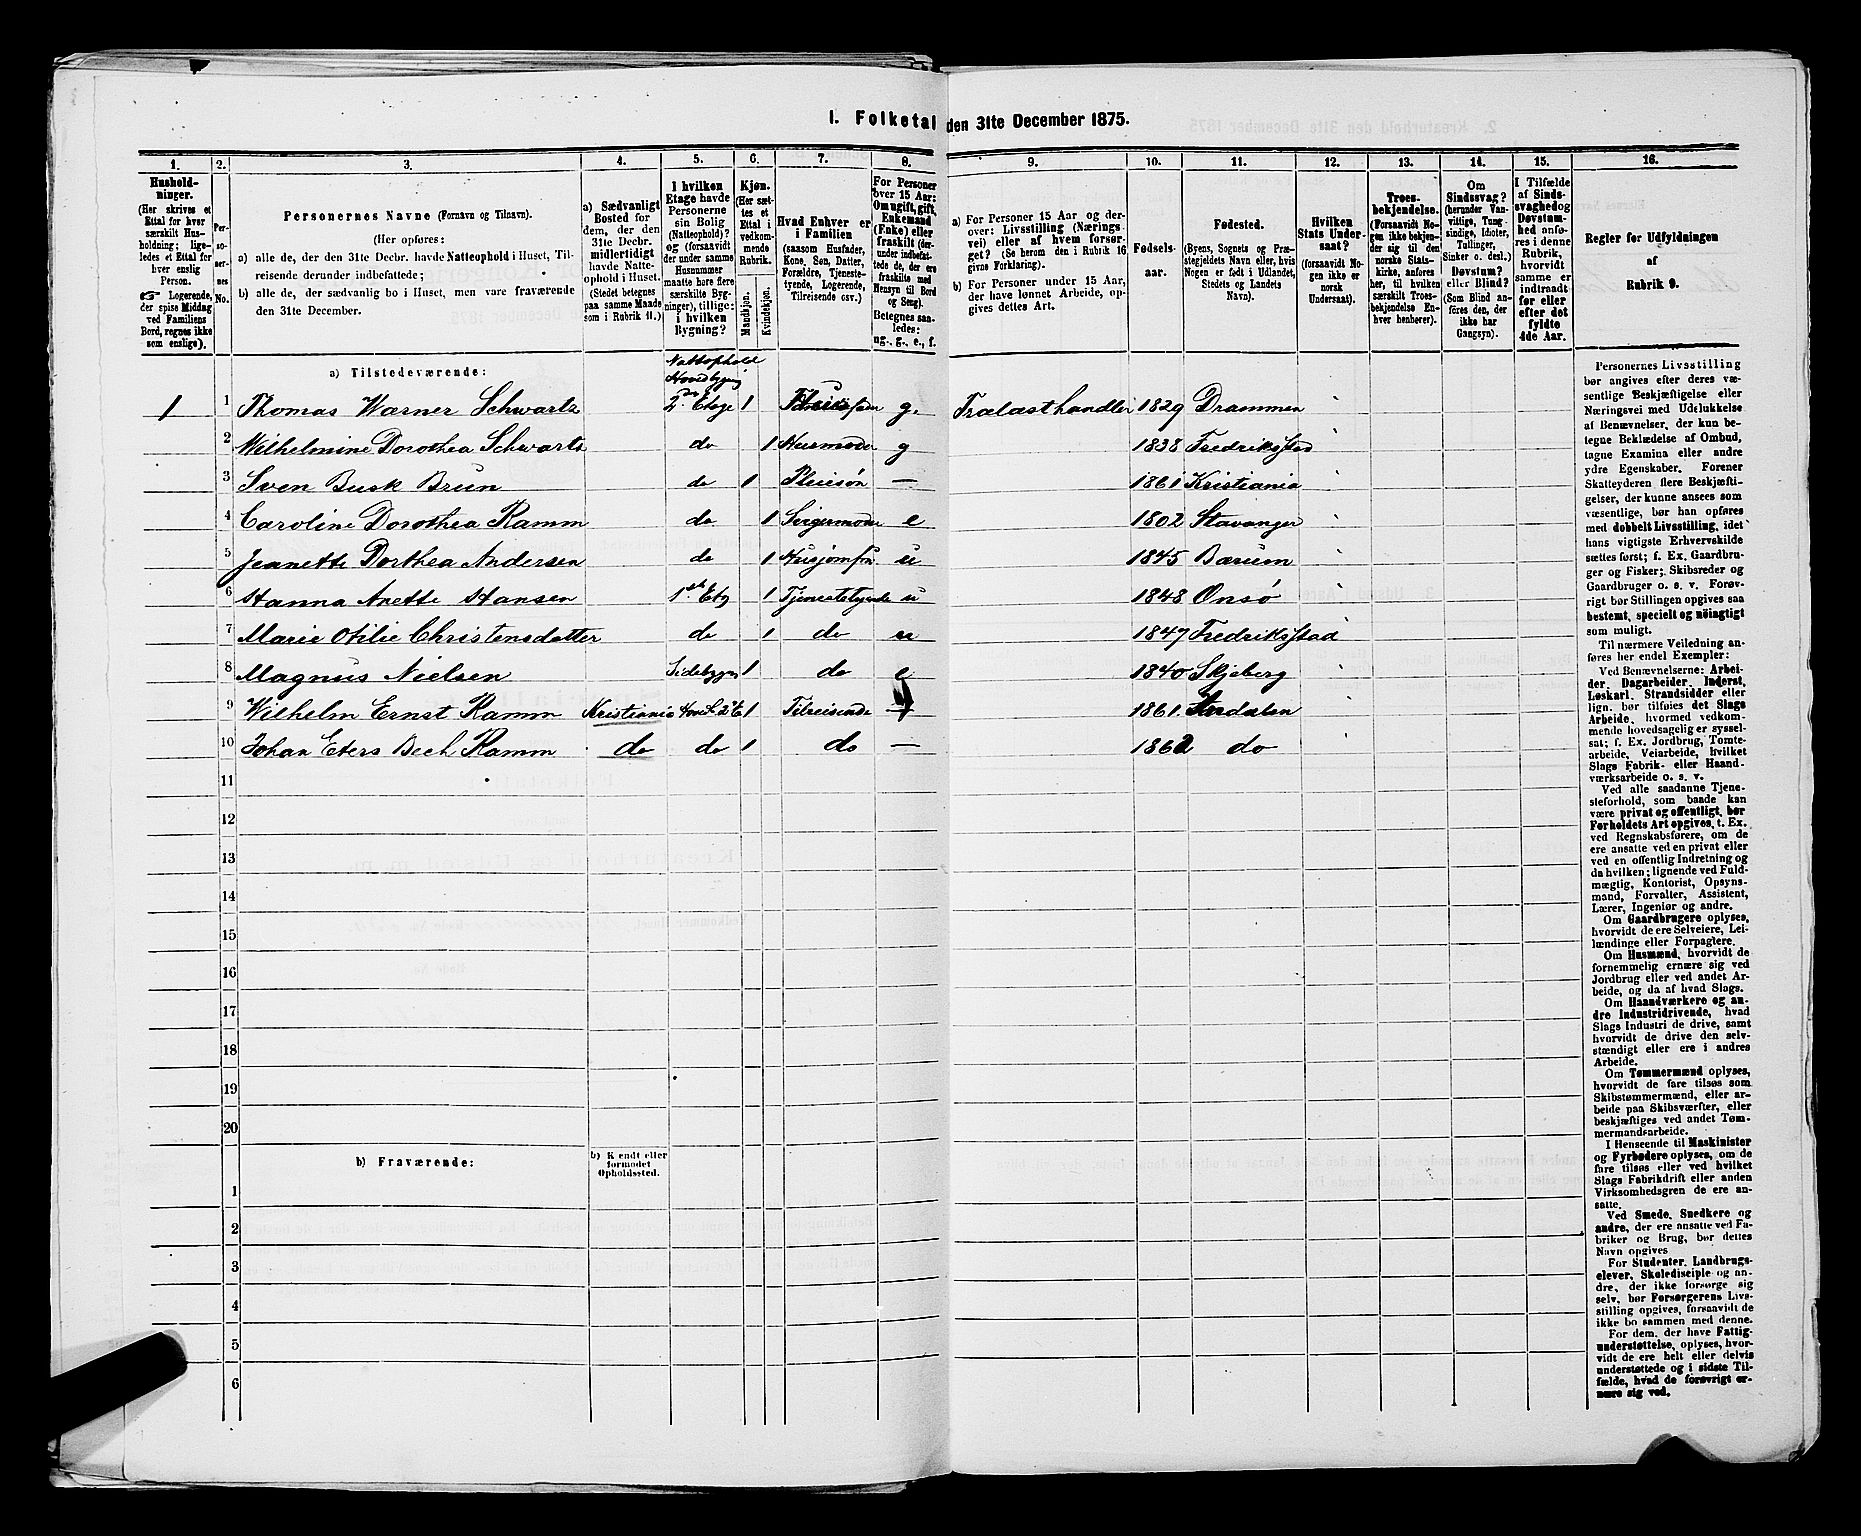 I. Folketal den 31te December 1875.
1. 2. 3. 4. 5. 6. 7. 8. 9. 10. 11. 12. 13. 14. 15. 16.
Hushold-
ninger.
(Her skrives et
Ettal for hver
særskilt Hus-
holdning; lige-
ledes et Ettal
for hver enslig
Person.
Logerende,
der spise Middag
ved Familiens
Bord, regnes ikke
som enslige).
Per-
so-
ner-
nes
No.
Personernes Navne (Fornavn og Tilnavn).
(Her opføres:
a) alle de, der den 31te Decbr. havde Natteophold i Huset, Til-
reisende derunder indbefattede;
b) alle de, der sædvanlig bo i Huset, men vare fraværende
den 31te December.
a) Sædvanligt
Bosted for
dem, der den
31te Decbr.
midlertidigt
havde Natte-
ophold i Huset.
(Stedet betegnes
paa samme Maade
som i Rubrik 11.)
I hvilken
Etage havde
Personerne
sin Bolig
(Natteophold)?
og (forsaavidt
der under
samme Husnummer
maatte høre flere
særskilte Byg-
ninger), tillige:
i hvilken
Bygning?
Kjøn.
(Her sæt-
tes et
Ettal i
vedkom-
mende
Rubrik.
Mandkjøn.
Kvindekjøn.
Hvad Enhver er
i Familien
(saasom Husfader,
Kone, Søn, Datter,
Forældre, Tjeneste-
tyende, Logerende,
Tilreisende osv.)
For Personer
over 15 Aar:
Om ugift, gift,
Enkemand
(Enke) eller
fraskilt (der-
under indbefat-
tede de, der ere
fraskilte med
Hensyn til Bord
og Seng).
Betegnes saa-
ledes:
ug., g., e., f.
a) For Personer 15 Aar og der-
over: Livsstilling (Nærings-
vei) eller af hvem forsør-
get? (Se herom den i Rubrik 16
givne Forklaring).
b) For Personer under 15 Aar,
der have lønnet Arbeide, op-
gives dettes Art.
Fødsels-
aar.
Fødested.
(Byens, Sognets og Præ-
stegjeldets Navn eller, hvis
Nogen er født i Udlandet,
Stedets og Landets
Navn).
Hvilken
Stats Under-
saat?
(forsaavidt No-
gen ikke er
norsk
Undersaat).
Troes-
bekjendelse.
(Forsaavidt No-
gen ikke bekjen-
der sig til den
norske Stats-
kirke, anføres
her, til hvilken
særskilt Troes-
bekjendelse En-
hver henhører).
Om
Sindssvag?
(herunder Van-
vittige, Tung-
sindige, Idioter,
Tullinger,
Sinker o. desl.)
Døvstum?
eller Blind?
(Som Blind an-
føres den, der
ikke har
Gangsyn).
I Tilfælde
af Sinds-
svaghed og
Døvstum-
hed anfø-
res i denne
Rubrik,
hvorvidt
samme er
indtraadt
før eller
efter det
fyldte
4de Aar.
Regler for Udfyldningen
af
Rubrik 9.
a) Tilstedeværende:
Natteophold
Hovedbygning
1 1 Thomas Warner Schwartz 2den Etage 1 g. Trælasthandler 1829 Drammen
2 Wilhelmine Dorothea Schwartz do 1 Husmoder g 1838 Fredriksstad
3 Sven Busk Brun do 1 Pleiesøn — 1861 Kristiania
4 Caroline Dorothea Ramm do 1 Svigermoder e 1802 Stavanger
5 Jeanette Dorthea Andersen do 1 Husjomfru u 1845 Bærum
6 Hanna Anette Hansen 1ste Etg 1 Tjenestetyende u 1848 Onsø
7 Marie Otilie Christensdatter do 1 do u 1847 Fredriksstad
8 Magnus Nielsen Sidebygn 1 do e 1840 Skjeberg
9 Wilhelm Ernst Ramm Kristiania Hovb. 2 E 1 Tilreisende 1861
10 Johan Eters Bech Ramm do do 1 do — 1862 do
11
12
13
14
15
16
17
18
19
20
b) Fraværende:
b) Kendt eller
formodet
Opholdssted.
1
2
3
4
5
6
Personernes Livsstilling
bør angives efter deres væ-
sentlige Beskjæftigelse eller
Næringsvei med Udelukkelse
af Benævnelser, der kun be-
tegne Beklædelse af Ombud,
tagne Examina eller andre
ydre Egenskaber. Forener
Skatteyderen flere Beskjæfti-
gelser, der kunne ansees som
væsentlige, bør han opføres
med dobbelt Livsstilling, idet
hans vigtigste Erhvervskilde
sættes først; f. Ex. Gaardbru-
ger og Fisker; Skibsreder og
Gaardbruger o. s. v. Forøv-
rigt bør Stillingen opgives saa
bestemt, specielt og nøiagtigt
som muligt.
Til nærmere Veiledning an-
føres her endel Exempler:
Ved Benævnelserne: Arbei-
der, Dagarbeider, Inderst,
Løskarl, Strandsidder eller
lign. bør tilføies det Slags
Arbeide, hvormed vedkom-
mende hovedsagelig er syssel-
sat; f. Ex. Jordbrug, Tomte-
arbeide, Veiarbeide, hvilket
Slags Fabrik- eller Haand-
værksarbeide o. s. v.
Ved alle saadanne Tjene-
steforhold, som baade kan
være privat og offentligt, bør
Forholdets Art opgives, t. Ex.
ved Regnskabsførere, om de
ere ansatte ved en privat eller
ved en offentlig Indretning og
da hvilken; lignende ved Fuld-
mægtig, Kontorist, Opsyns-
mand, Forvalter, Assistent,
Lærer, Ingeniør og andre.
Om Gaardbrugere oplyses,
hvorvidt de ere Selveiere, Lei-
lændinge eller Forpagtere.
Om Husmænd, hvorvidt de
fornemmelig ernære sig ved
Jordbrug eller ved andet Ar-
beide, og da af hvad Slags.
Om Haandværkere og an-
dre Industridrivende, hvad
Slags Industri de drive, samt
hvorvidt de drive den selv-
stændigt eller ere i andres
Arbeide.
Om Tømmermænd oplyses,
hvorvidt de fare tilsøs som
Skibstømmermænd, eller ar-
beide paa Skibsværfter, eller
beskjæftiges ved andet Tøm-
mermandsarbeide.
I Henseende til Maskinister
og Fyrbødere oplyses, om de
fare tilsøs eller ved hvilket
Slags Fabrikdrift eller anden
Virksomhedsgren de ere an-
satte.
Ved Smede, Snedkere og
andre, der ere ansatte ved Fa-
briker og Brug, bør dettes
Navn opgives
For Studenter, Landbrugs-
elever, Skoledisciple og an-
dre, der ikke forsørge sig
selv, bør Forsørgerens Livs-
stilling opgives, forsaavidt de
ikke bo sammen med denne.
For dem, der have Fattig-
understøttelse, oplyses, hvor-
vidt de ere helt eller delvis
understøttede og i sidste Til-
fælde, hvad de forøvrigt er-
nære sig ved.